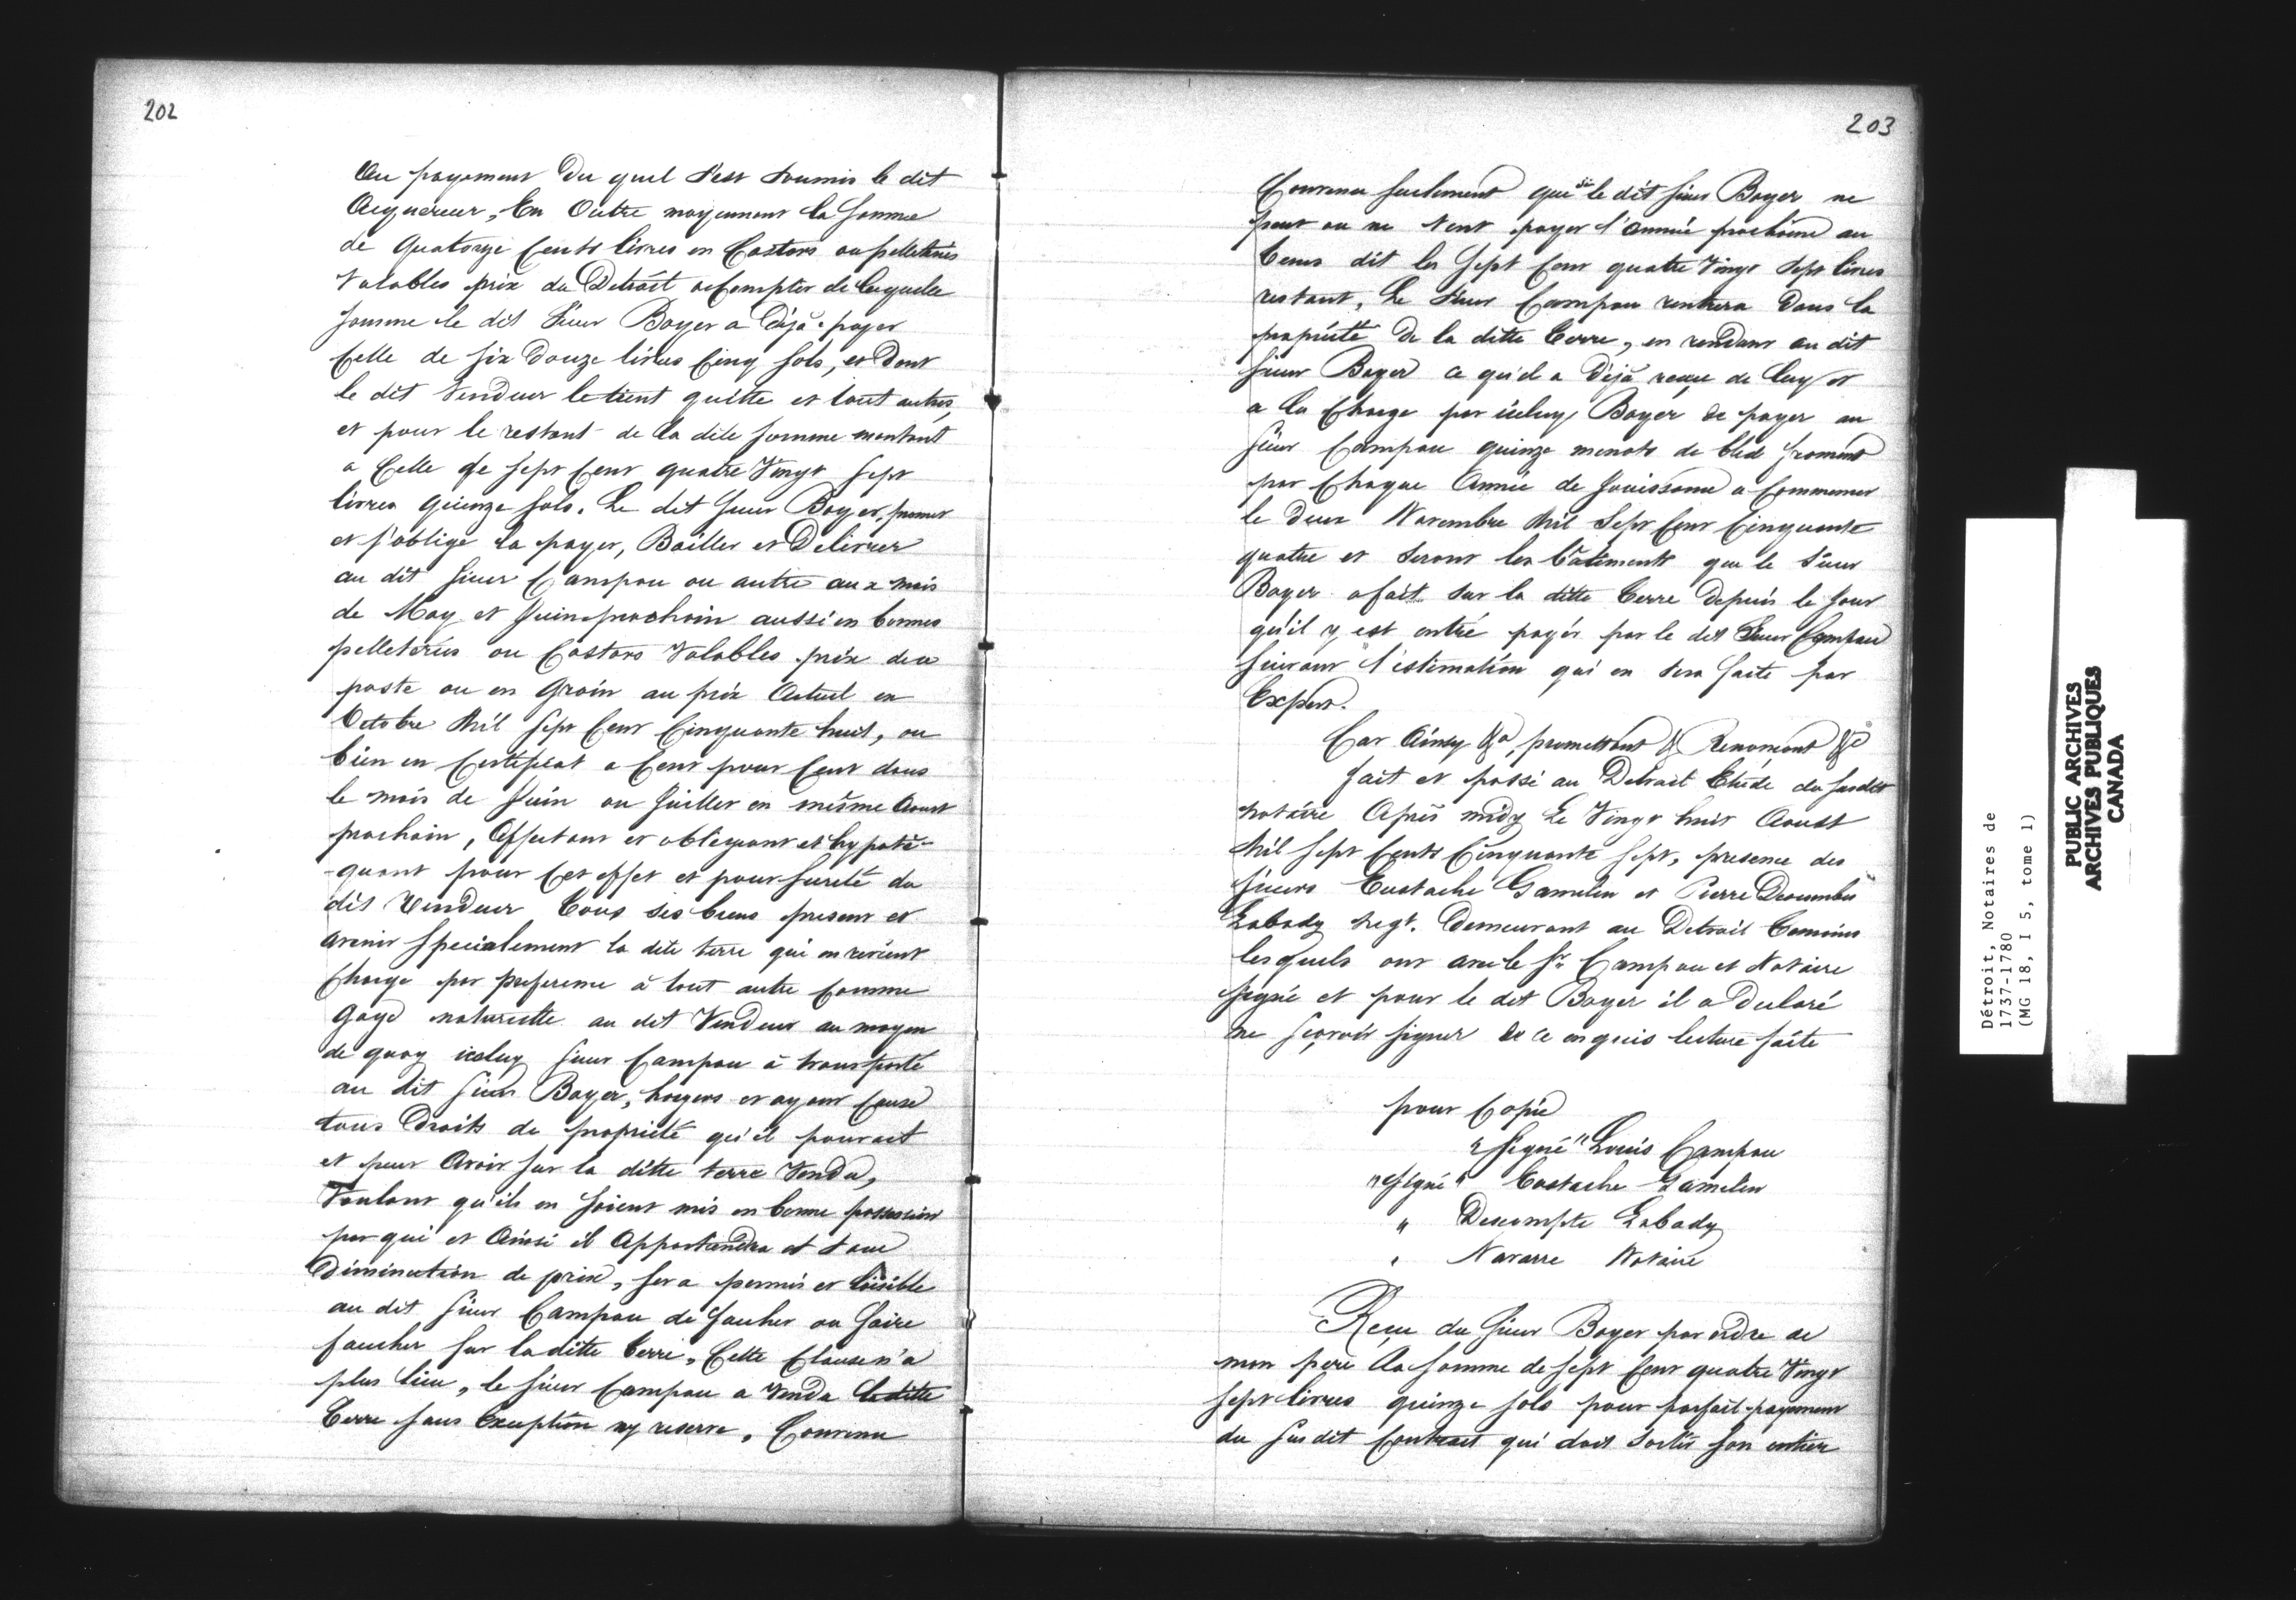 202
Au payement du quel s'est soumis le dit
Acquereur, En Outre moyennant la somme
de Quatorze Cents livres en Castors ou pelleteries
Valables prix du Détroit a Compter de laquelle
somme le dit Sieur Boyer a Déjà payer
Celle de six Douze livres Cinq sols, et Dont
le dit Vendeur le tient quitte et tout autres,
et pour le restant de la dite somme montant
a Celle de sept Cent quatre Vingt sept
livres Quinze sols. Le dit sieur Boyer, promet
et s'oblige la payer, Bailler et Delivrer
au dit sieur Campau ou autre aux mois
de May et Juin prochain aussi en bonnes
pelleteries ou Castors Valables prix du
poste ou en Grain au prix Actuel en
Octobre Mil sept Cent Cinquante huit, ou
bien en Certificat a Cent pour Cent dans
le mois de Juin ou Juillet en mesme Aoust
prochain, Affectant et obligeant et hypoté-
-quant pour Cet effet et pour sureté du
dit Vendeur tous ses biens present et
avenir specialement la dite terre qui en revient
Charge par preference à tout autre Comme
Gage naturelle au dit Vendeur au moyen
de quoy iceluy sieur Campau à transporté
au dit sieur Boyer, hoyers et ayant Cause
tous Droits de propriété qu'il pouvait
et peut Avoir sur la ditte terre Vendu,
Voulant qu'ils en soient mis en bonne possession
par qui et Ainsi il Appartiendra et sans
Diminution de prix, sera permis et loisible
au dit sieur Campau de faucher ou faire
faucher sur la ditte terre, Cette Clause n'a
plus lieu, le sieur Campau a Vendu la ditte
terre sans Exception ny reserve, Convenu
203
Convenu seulement que si le dit sieur Boyer ne
peut ou ne veut payer l'année prochaine au
tems dit les sept Cent quatre Vingt sept livres
restant, Le sieur Campau rentrera Dans la
propriété de la ditte terre, en rendant au dit
sieur Boyer ce qu'il a Déjà reçue de luy et
a la Charge par iceluy Boyer de payer au
sieur Campau quinze minots de bled froment
par Chaque Année de Jouissance a Commencer
le Deux Novembre Mil Sept Cent Cinquante
quatre et seront les bâtiments que le sieur
Boyer a fait sur la ditte terre Depuis le Jour
qu'il y est entré payés par le dit Sieur Campau
suivant l'estimation qui en sera faite par
Expert.
Car Ainsy &a, promettant & Renonçant &c
fait et passé au Detroit Etude du susdit
notaire Après midy Le Vingt huit Aoust
Mil sept Cents Cinquante sept, presence des
sieurs Eustache Gamelin et Pierre Descombte
Labady negt. Demeurant au Detroit temoins
lesquels ont avec le Sr. Campau et Notaire
signé et pour le dit Boyer il a Declaré
ne sçavoir signer de ce enquis lecture faite
pour Copie
"signé" Louis Campau
"signé" Eustache Gamelin
" Descompte Labady
" Navarre Notaire
Reçu du sieur Boyer par ordre de
mon pere La somme de sept Cent quatre Vingt
sept livres quinze sols pour parfait payement
du sus dit Contract qui doit sortir son entier
Détroit, Notaires de
1737-1780
(MG 18, I 5, tome 1)
PUBLIC ARCHIVES
ARCHIVES PUBLIQUES
CANADA